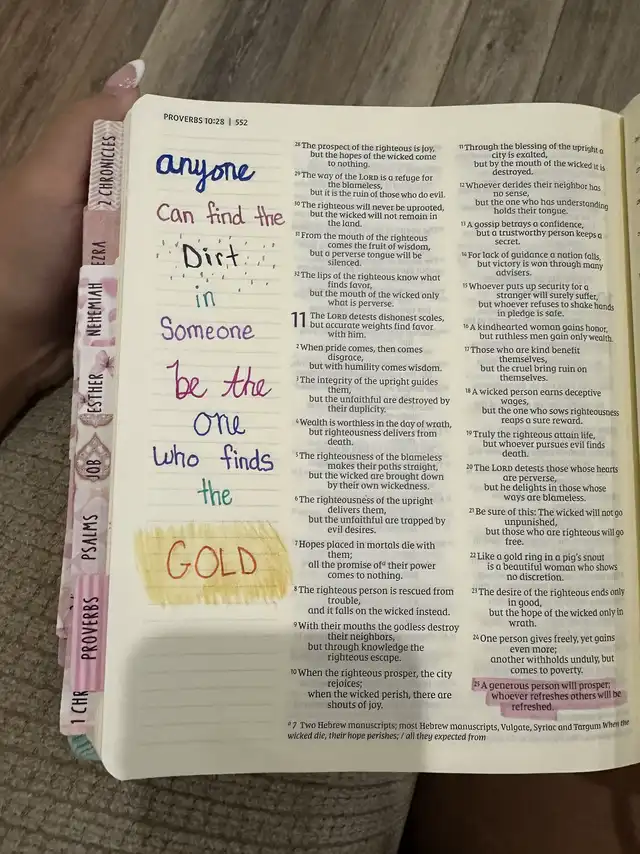 PROVERBS 10:28 | 552
anyone
Can find the
Dirt
in
Someone
be the
one
who finds
the
GOLD
28 The prospect of the righteous is joy,
but the hopes of the wicked come
to nothing.
29 The way of the LORD is a refuge for
the blameless,
but it is the ruin of those who do evil.
30 The righteous will never be uprooted,
but the wicked will not remain in
the land.
31 From the mouth of the righteous
comes the fruit of wisdom,
but a perverse tongue will be
silenced.
32 The lips of the righteous know what
finds favor,
but the mouth of the wicked only
what is perverse.
11 The LORD detests dishonest scales,
but accurate weights find favor
with him.
2 When pride comes, then comes
disgrace,
but with humility comes wisdom.
3 The integrity of the upright guides
them,
but the unfaithful are destroyed by
their duplicity.
4 Wealth is worthless in the day of wrath,
but righteousness delivers from
death.
5 The righteousness of the blameless
makes their paths straight,
but the wicked are brought down
by their own wickedness.
6 The righteousness of the upright
delivers them,
but the unfaithful are trapped by
evil desires.
7 Hopes placed in mortals die with
them;
all the promise of a their power
comes to nothing.
8 The righteous person is rescued from
trouble,
and it falls on the wicked instead.
9 With their mouths the godless destroy
their neighbors,
but through knowledge the
righteous escape.
10 When the righteous prosper, the city
rejoices;
when the wicked perish, there are
shouts of joy.
11 Through the blessing of the upright a
city is exalted,
but by the mouth of the wicked it is
destroyed.
12 Whoever derides their neighbor has
no sense,
but the one who has understanding
holds their tongue.
13 A gossip betrays a confidence,
but a trustworthy person keeps a
secret.
14 For lack of guidance a nation falls,
but victory is won through many
advisers.
15 Whoever puts up security for a
stranger will surely suffer,
but whoever refuses to shake hands
in pledge is safe.
16 A kindhearted woman gains honor,
but ruthless men gain only wealth.
17 Those who are kind benefit
themselves,
but the cruel bring ruin on
themselves.
18 A wicked person earns deceptive
wages,
but the one who sows righteousness
reaps a sure reward.
19 Truly the righteous attain life,
but whoever pursues evil finds
death.
20 The LORD detests those whose hearts
are perverse,
but he delights in those whose
ways are blameless.
21 Be sure of this: The wicked will not go
unpunished,
but those who are righteous will go
free.
22 Like a gold ring in a pig's snout
is a beautiful woman who shows
no discretion.
23 The desire of the righteous ends only
in good,
but the hope of the wicked only in
wrath.
24 One person gives freely, yet gains
even more;
another withholds unduly, but
comes to poverty.
25 A generous person will prosper;
whoever refreshes others will be
refreshed.
a 7 Two Hebrew manuscripts; most Hebrew manuscripts, Vulgate, Syriac and Targum When the
wicked die, their hope perishes; / all they expected from
2 CHRONICLES
EZRA
NEHEMIAH
ESTHER
JOB
PSALMS
PROVERBS
1 CHR